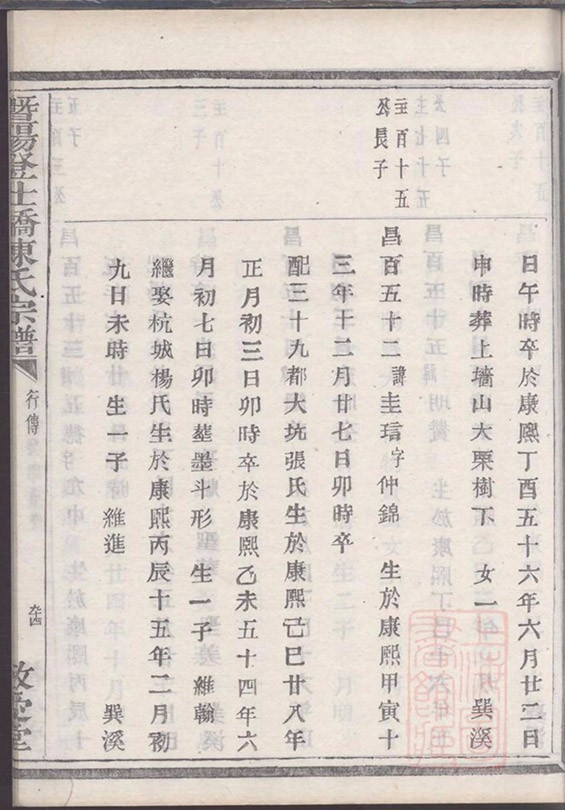 日午時卒於康熙丁酉五十六年六月廿三日
申時葬上墻山大栗樹下　女一　巽溪
圭百十五
公長子
昌百五十二諱圭琂字仲錦　生於康熙甲寅十
三年十二月廿七日卯時卒
配三十九都大坑張氏生於康熙己巳廿八年
正月初三日卯時卒於康熙乙未五十四年六
月初七日卯時葬墨斗形　生一子　維翰
繼娶杭城楊氏生於康熙丙辰十五年二月初
九日未時　生一子　維進　巽溪
暨陽登仕橋陳氏宗譜
行傳